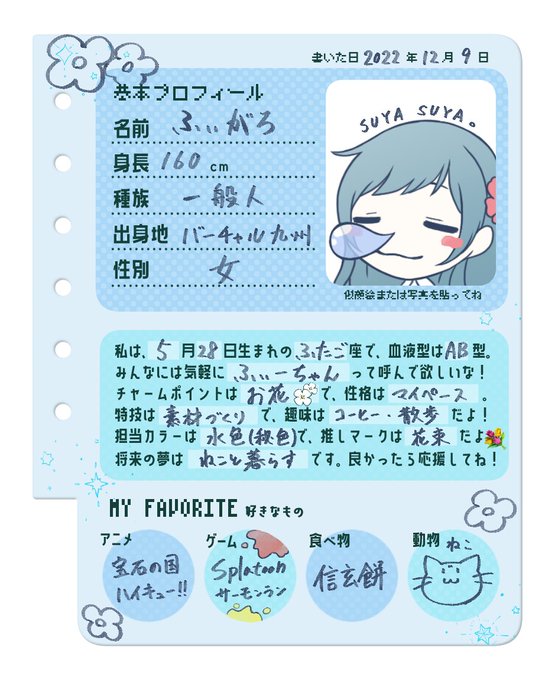 書いた日 2022 年 12 月 9 日
基本プロフィール
SUYA SUYA。
名前 ふぃがろ
身長 160 cm
種族 一般人
出身地 バーチャル九州
性別 女
似顔絵または写真を貼ってね
私は、5月28日生まれのふたご座で、血液型はAB型。
みんなには気軽に ふぃーちゃん って呼んで欲しいな!
チャームポイントは お花 で、性格は マイペース 。
特技は 素材づくり で、趣味は コーヒー・散歩 だよ!
担当カラーは 水色(秘色)で、推しマークは 花束 だよ
将来の夢は ねこと暮らす です。良かったら応援してね!
MY FAVORITE 好きなもの
アニメ
宝石の国
ハイキュー!!
ゲーム
Splatoon
サーモンラン
食べ物
信玄餅
動物 ねこ